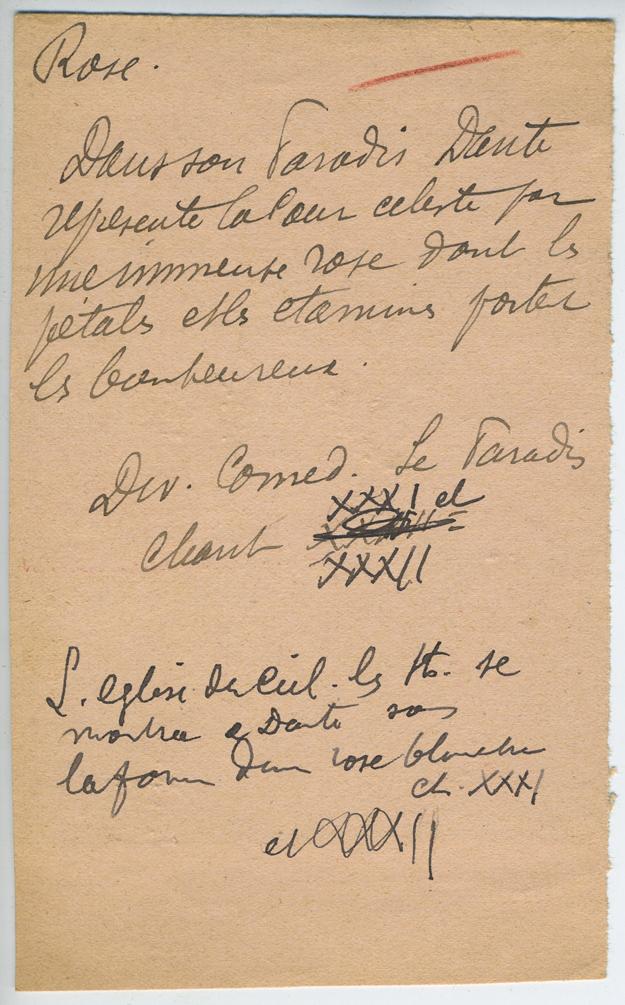 Rose.
Dans son Paradis Dante
represente la Cour celeste par
une immense rose dont les
pétales et les etamines portent
les bienheureux.
Div. Comed. Le Paradis
XXXI et
Chant
XXXII
L'eglise du Ciel. les Sts. se
montra a Dante sous
la forme d'une rose blanche
ch. XXXI
et XXXII